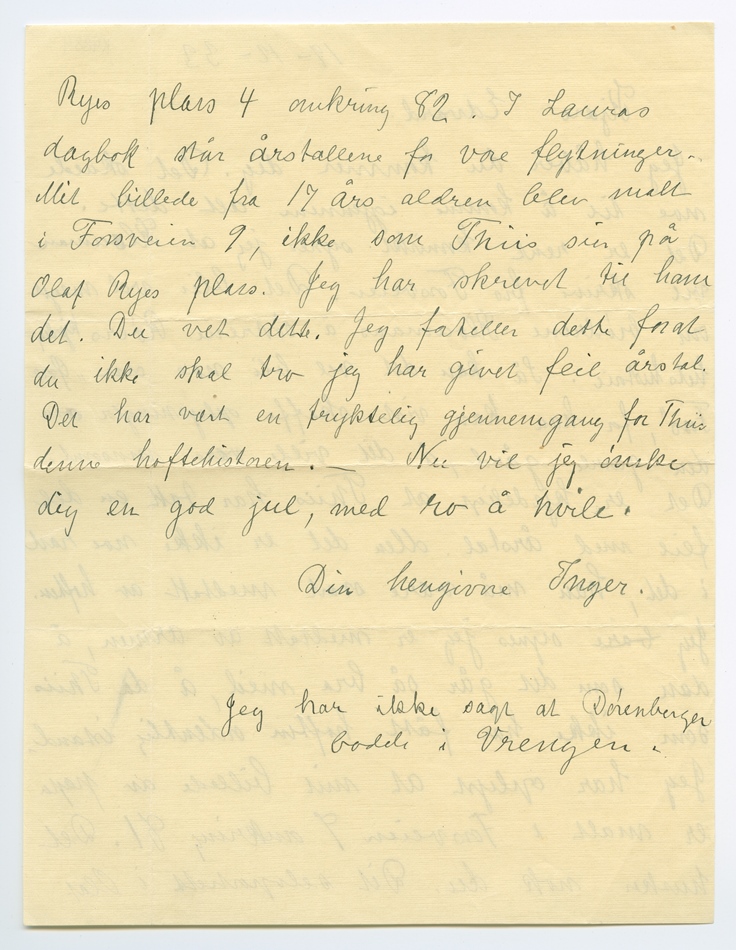 Ryes plass 4 omkring 82. I Lauras
dagbok står årstallene for vore flytninger.
Mit billede fra 17 års aldren blev malt
i Fossveien 9, ikke som Thiis sier på
Olaf Ryes plass. Jeg har skrevet til ham
det. Du vet dette. Jeg forteller dette forat
du ikke skal tro jeg har givet feil årstal.
Det har vært en fryktelig gjennemgang for Thiis
denne hoftehistorien. — Nu vil jeg ønske
dig en god jul, med ro å hvile.
Din hengivne Inger.
Jeg har ikke sagt at Dørenberger
bodde i Vrengen.